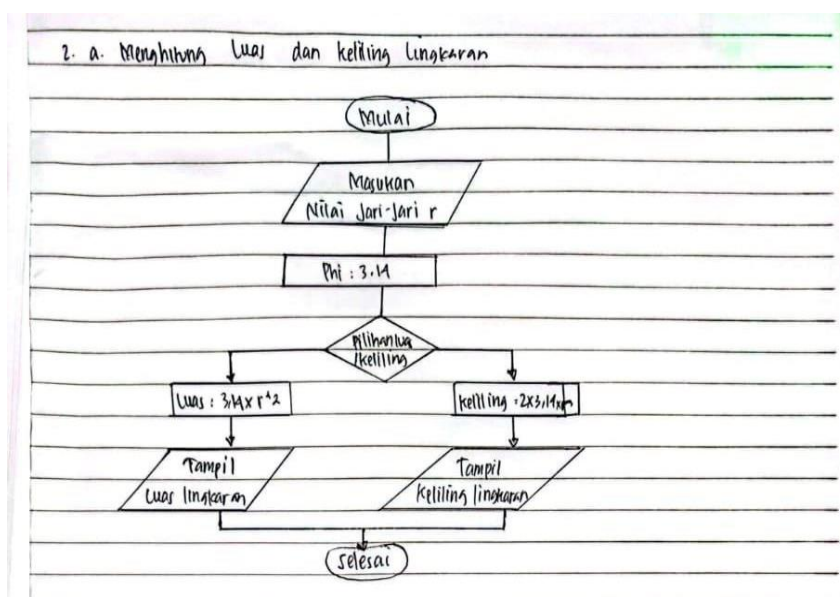 2. a. Menghitung Luas dan keliling lingkaran
Mulai
Masukan
Nilai Jari-Jari r
Phi : 3.14
pilihan lua
/keliling
Luas : 3,14 x r^2
keliling : 2x3,14xr
Tampil
Luas lingkaran
Tampil
keliling lingkaran
selesai